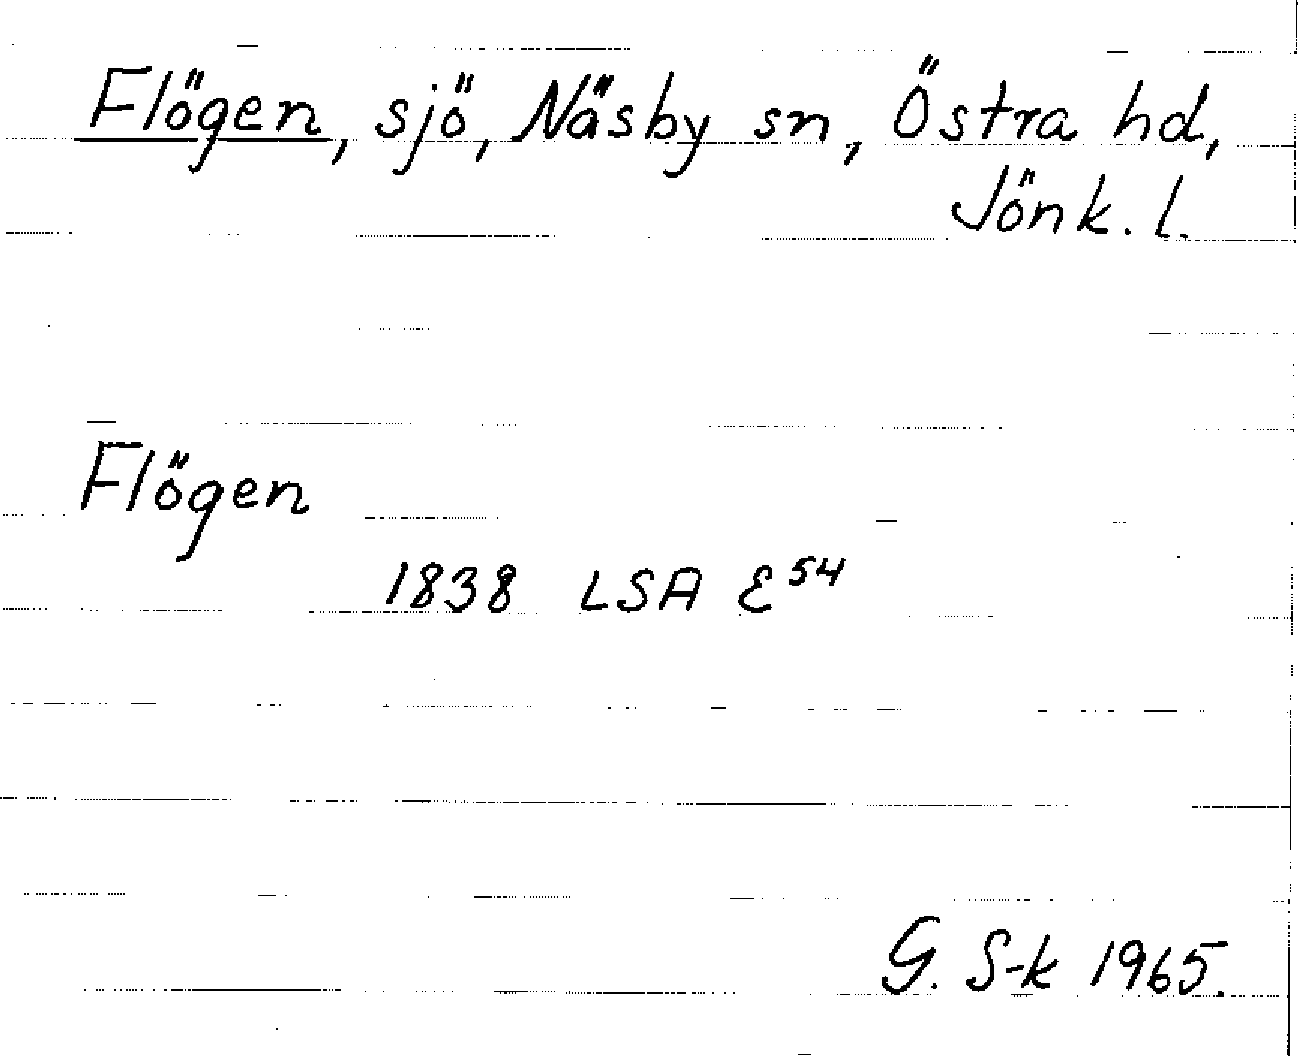 Flögen, sjö, Näsby sn, Östra hd,
Jönk. l.
Flögen
1838 LSA E54
G. S-k 1965.